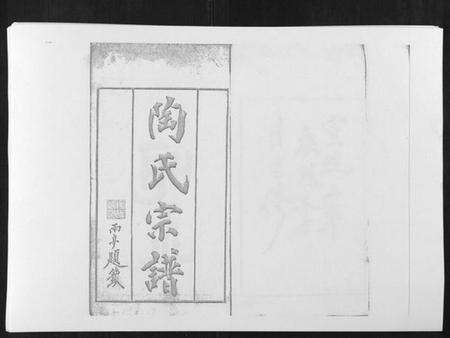 陶氏宗譜
題籤